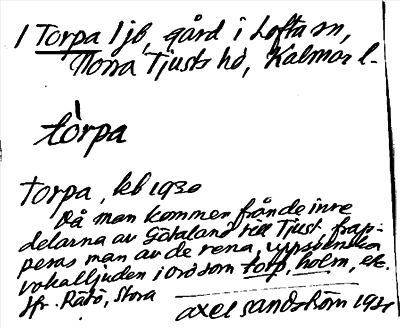 1 Torpa 1 jb, gård i Lofta sn,
Norra Tjusts hd, Kalmar l.
tòrpa
Torpa, kb 1930
Då man kommer från de inre
delarna av Götaland till Tjust, frap-
peras man av de rena, uppsvenska
vokalljuden i ord som torp, holm, etc.
Jfr. Rätö, Stora
Axel Sandström 19